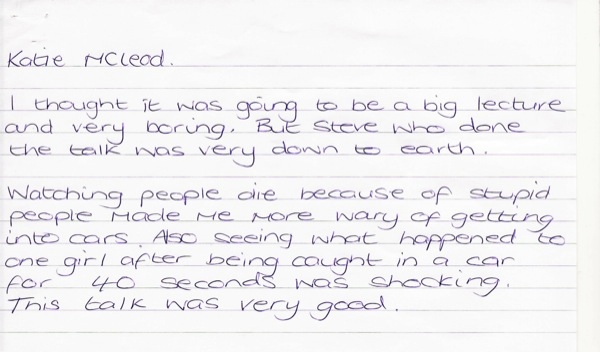 Katie McLeod.
I thought it was going to be a big lecture
and very boring. But Steve who done
the talk was very down to earth.
Watching people die because of stupid
people made me more wary of getting
into cars. Also seeing what happened to
one girl after being caught in a car
for 40 seconds was shocking.
This talk was very good.